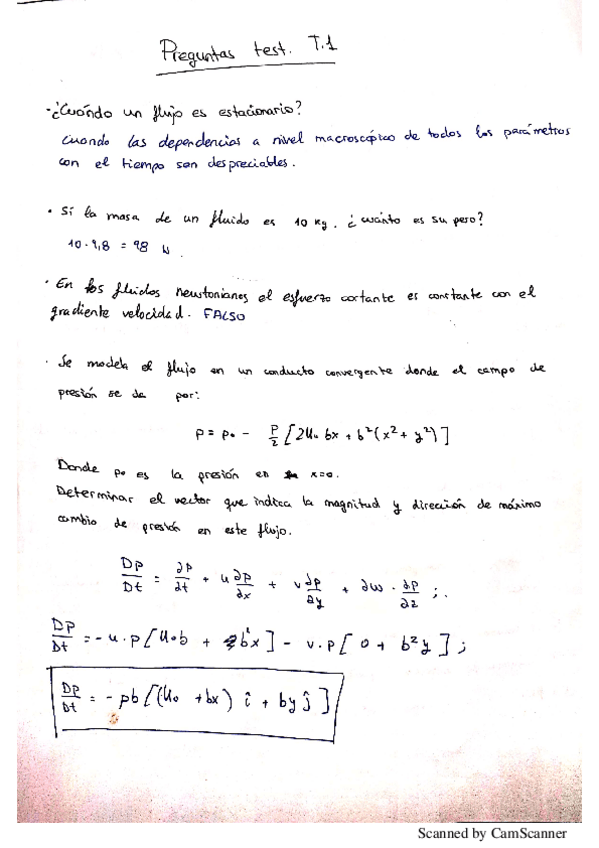 Preguntas test. T.1
·¿Cuándo un flujo es estacionario?
Cuando las dependencias a nivel macroscópico de todos los parámetros
con el tiempo son despreciables.
· Si la masa de un fluido es 10 kg. ¿cuánto es su peso?
10·9,8 = 98 N.
· En los fluidos newtonianos el esfuerzo cortante es constante con el
gradiente velocidad. FALSO
· Se modela el flujo en un conducto convergente donde el campo de
presión se da por:
p = p₀ - ρ/2 [2U₀ bx + b²(x² + y²)]
Donde p₀ es la presión en x=0.
Determinar el vector que indica la magnitud y dirección de máximo
cambio de presión en este flujo.
Dp/Dt = ∂p/∂t + u ∂p/∂x + v ∂p/∂y + ∂w · ∂p/∂z ;.
Dp/Dt = -u·ρ[U₀b + b²x] - v·ρ[0 + b²y] ;
Dp/Dt = -ρb[(U₀ + bx) î + by ĵ]
Scanned by CamScanner